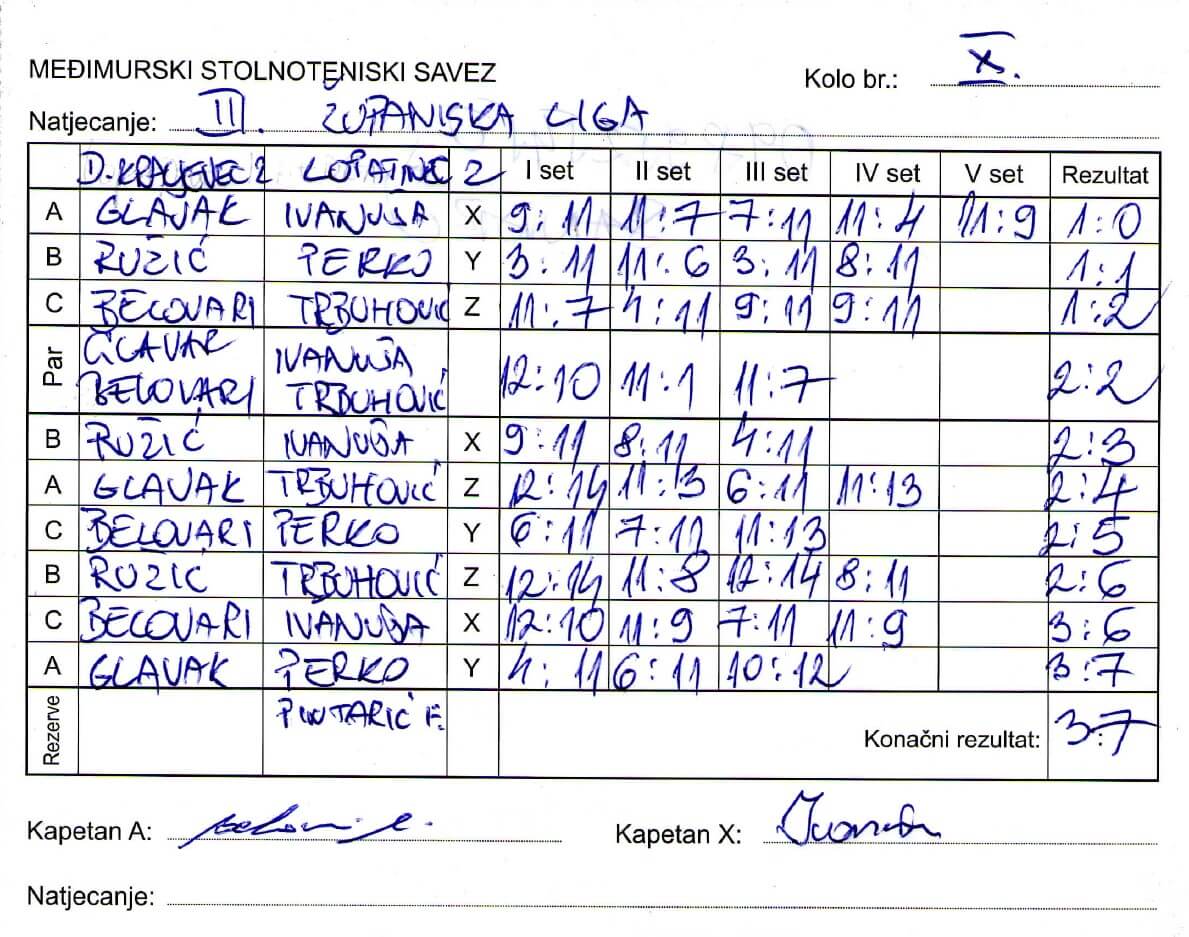 MEĐIMURSKI STOLNOTENISKI SAVEZ
Kolo br.: X.
Natjecanje: III. ŽUPANIJSKA LIGA
D. KRALJEVEC 2 LOPATINEC 2 I set II set III set IV set V set Rezultat
A GLAVAK IVANUŠA X 9:11 11:7 7:11 11:4 11:9 1:0
B RUŽIĆ PERKO Y 3:11 11:6 3:11 8:11 1:1
C BELOVARI TRBUHOVIĆ Z 11:7 4:11 9:11 9:11 1:2
Par GLAVAK BELOVARI IVANUŠA, TRBUHOVIĆ 12:10 11:1 11:7 2:2
B RUŽIĆ IVANUŠA X 9:11 8:11 4:11 2:3
A GLAVAK TRBUHOVIĆ Z 12:14 11:3 6:11 11:13 2:4
C BELOVARI PERKO Y 6:11 7:11 11:13 2:5
B RUŽIĆ TRBUHOVIĆ Z 12:14 11:8 12:14 8:11 2:6
C BELOVARI IVANUŠA X 12:10 11:9 7:11 11:9 3:6
A GLAVAK PERKO Y 4:11 6:11 10:12 3:7
Rezerve PINTARIĆ F. Konačni rezultat: 3:7
Kapetan A:
Kapetan X:
Natjecanje: